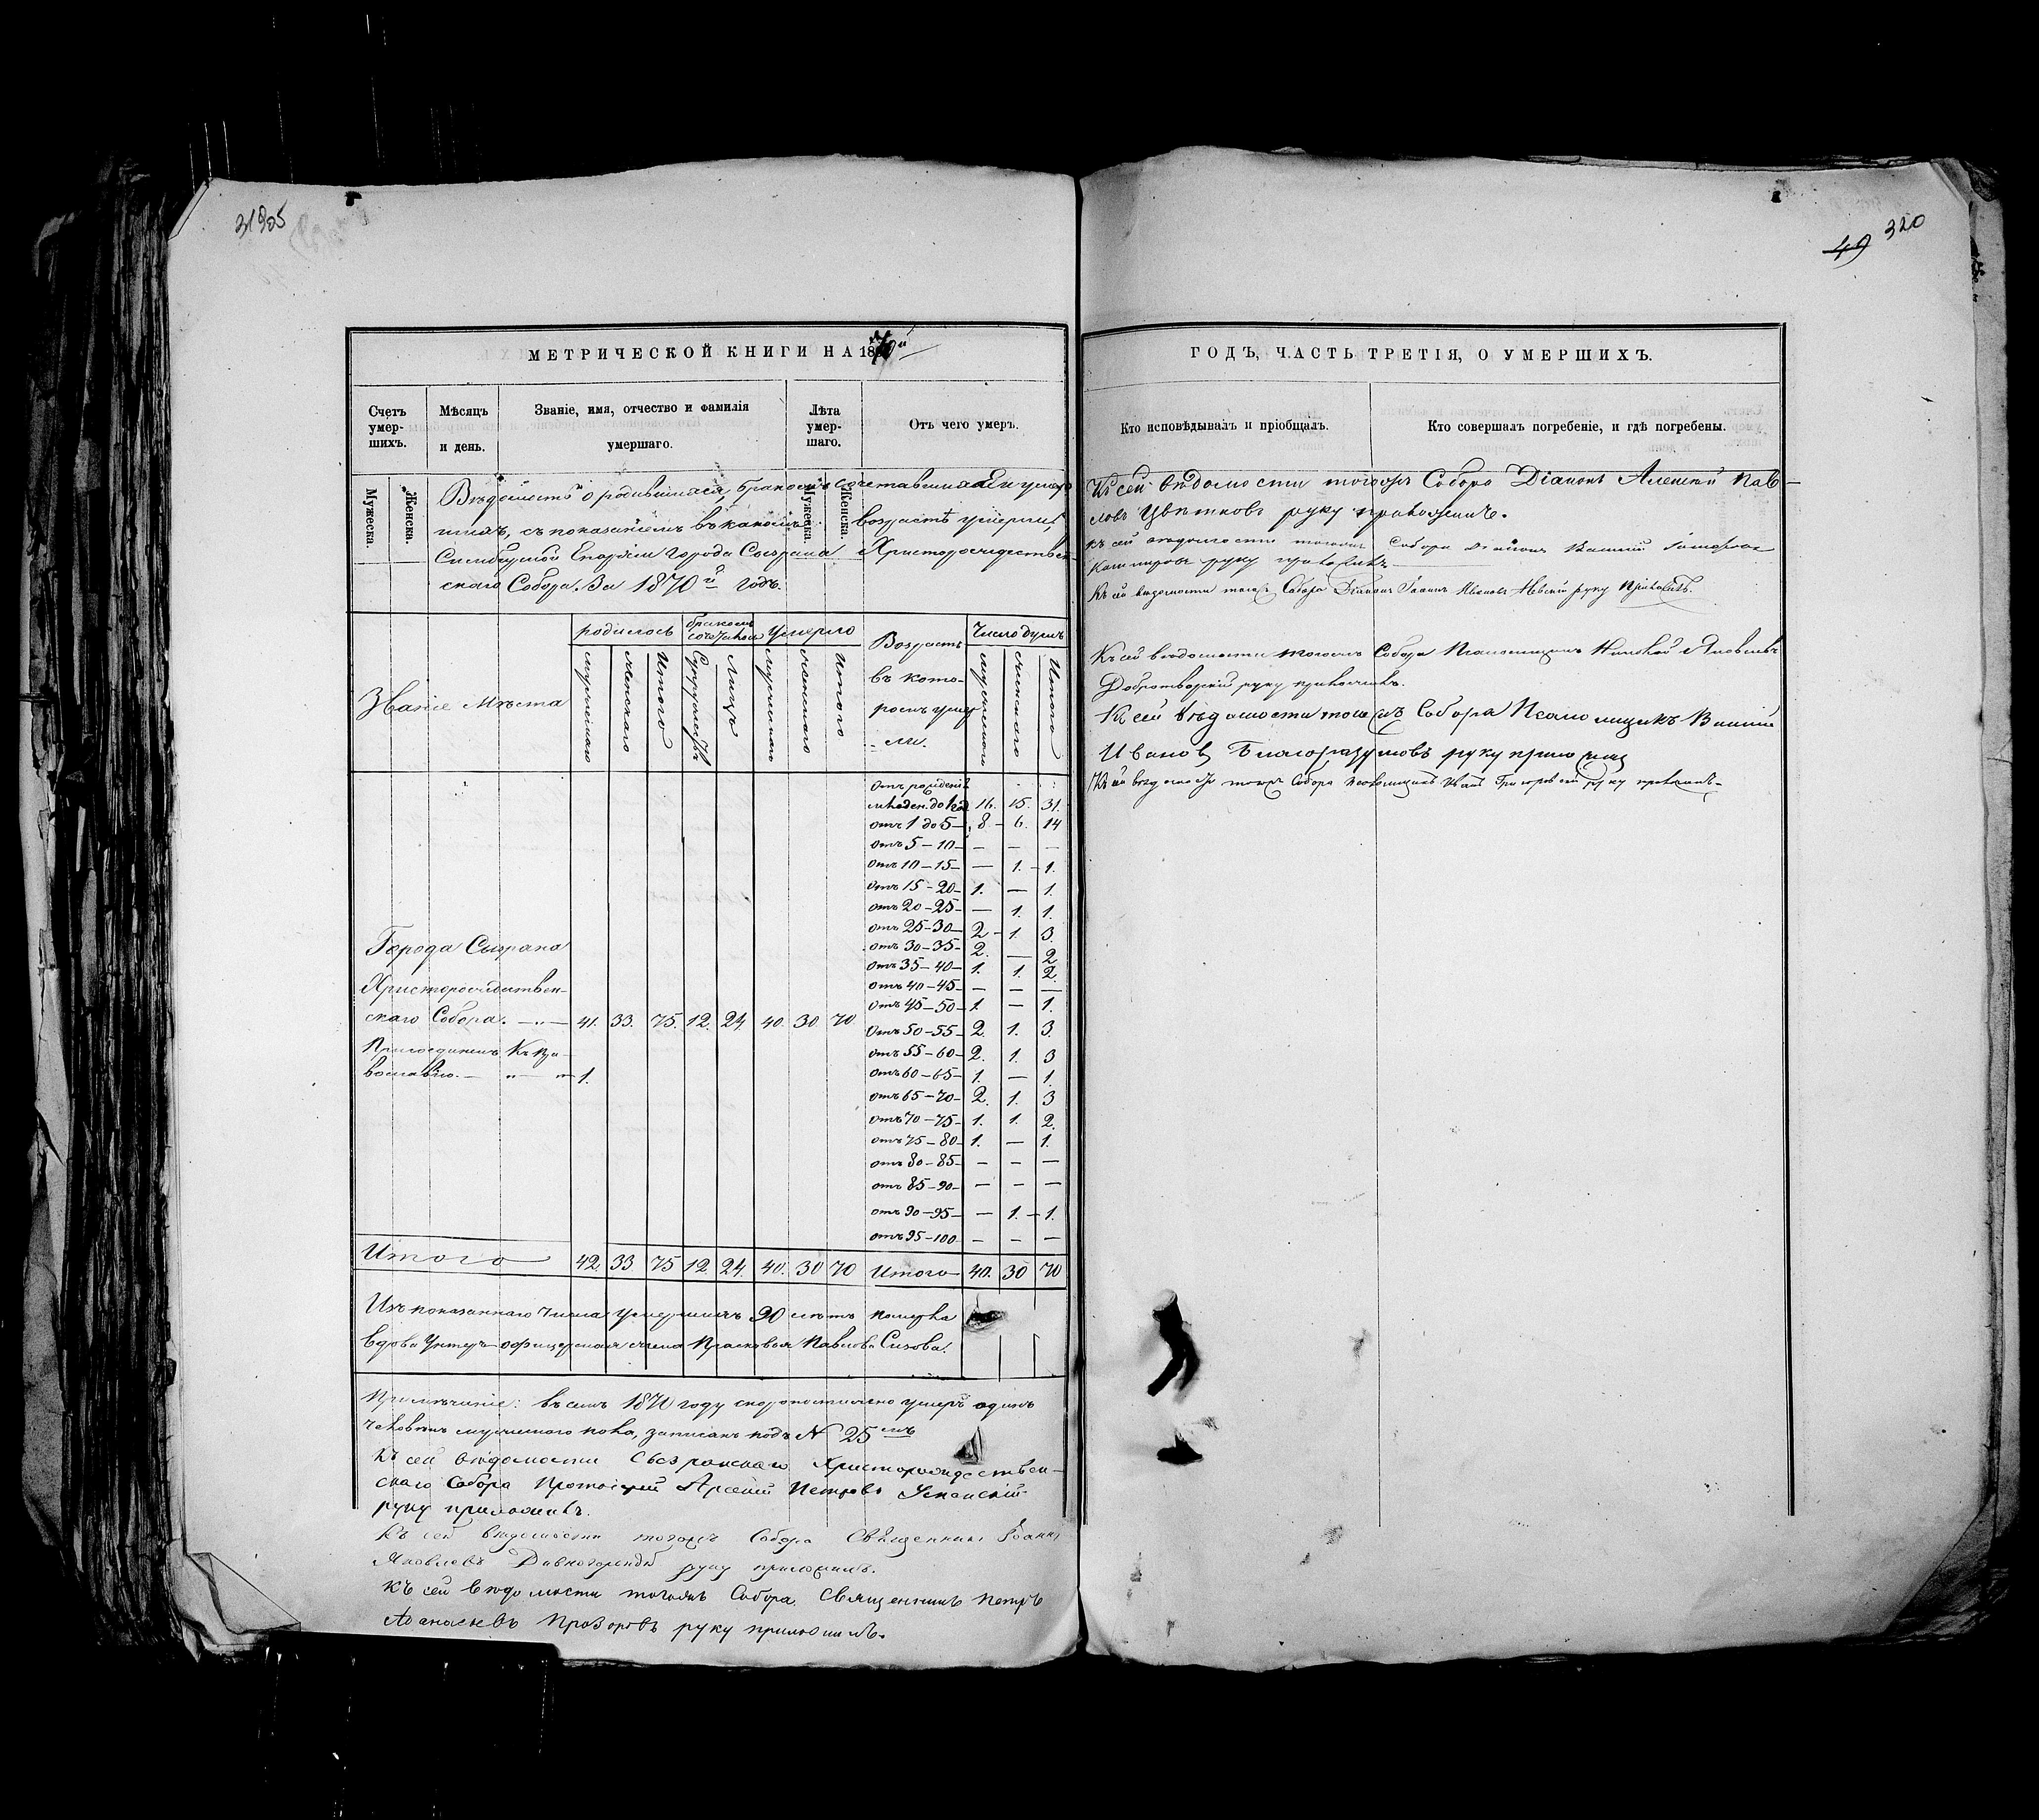 320
49
МЕТРИЧЕСКОЙ КНИГИ НА 1870й
Счетъ умер-шихъ.
Мѣсяцъ и день.
Званіе, имя, отчество и фамилія умершаго.
Лѣта умер-шаго.
Отъ чего умеръ.
Мужеска.
Женска.
Мужеска.
Женска.
Вѣдомость о родившихся, бракосочетавшихся и умер-
шихъ, съ показаніемъ въ какомъ возрастѣ умерли,
Симбирской Епархіи города Сызрана Христорождествен-
скаго Собора. За 1870й годъ.
Званіе мѣста
родилось
умерло
Мужескаго
Женскаго
Итого
Супружествъ
Лицъ
Мужескаго
Женскаго
Итого
Возрастъ
въ кото-
ромъ умер-
ли.
Число душъ
Мужескаго
Женскаго
Итого
отъ рожденія
младен. до год. 16. 15. 31.
отъ 1 до 5 — 8 — 6. 14
отъ 5 — 10 — — — —
отъ 10 — 15 — — 1. — 1.
отъ 15 — 20 — 1. — 1.
отъ 20 — 25 — — 1. 1.
отъ 25 — 30 — 2 — 1. 3.
отъ 30 — 35 — 2. — 2
отъ 35 — 40 — 1. 1. 2.
отъ 40 — 45 — — — —
отъ 45 — 50 — 1. — 1.
отъ 50 — 55 — 2. 1. 3.
отъ 55 — 60 — 2. 1. 3
отъ 60 — 65 — 1. — 1.
отъ 65 — 70 — 2. 1. 3
отъ 70 — 75 — 1. 1. 2.
отъ 75 — 80 — 1. — 1.
отъ 80 — 85 — — — —
отъ 85 — 90 — — — —
отъ 90 — 95 — — 1. — 1.
отъ 95 — 100 — — — —
Города Сызрана
Христорождествен-
скаго Собора. — „ — 41. 33. 75. 12. 24. 40. 30 70
Присоединенъ къ Пра-
вославію. — „ — „ — 1.
Итого 42. 33 75 12. 24. 40. 30 70 Итого 40. 30 70
Изъ показаннаго числа умершихъ 90 лѣтъ померла
вдова Унтеръ-офицерская жена Прасковья Павлова Сизова.
Примѣчаніе: въ семъ 1870 году скоропостижно умеръ одинъ
человѣкъ мужескаго пола, записанъ подъ № 25мъ
Къ сей вѣдомости Сызранскаго Христорождествен-
скаго Собора Протоіерей Арсеній Петровъ
руку приложилъ.
Къ сей вѣдомости тогожъ Собора Священникъ Іоаннъ
Яковлевъ руку приложилъ.
Къ сей вѣдомости тогожъ Собора Священникъ Петръ
Афанасьевъ Прозоровъ руку приложилъ.
ГОДЪ, ЧАСТЬ ТРЕТІЯ, О УМЕРШИХЪ.
Кто исповѣдывалъ и пріобщалъ.
Кто совершалъ погребеніе, и гдѣ погребены.
Къ сей вѣдомости тогожъ Собора Діаконъ Алексѣй Пав-
ловъ Цвѣтковъ руку приложилъ.
Къ сей вѣдомости тогожъ Собора Діаконъ Василій
руку приложилъ
Къ сей вѣдомости тогожъ Собора Діаконъ Іоаннъ Невскій руку приложилъ.
Къ сей вѣдомости тогожъ Собора Псаломщикъ Николай Яковлевъ
Добротворскій руку приложилъ.
Къ сей вѣдомости тогожъ Собора Псаломщикъ Василій
Ивановъ Благоразумовъ руку приложилъ
Къ сей вѣдомости тогожъ Собора Псаломщикъ руку приложилъ.